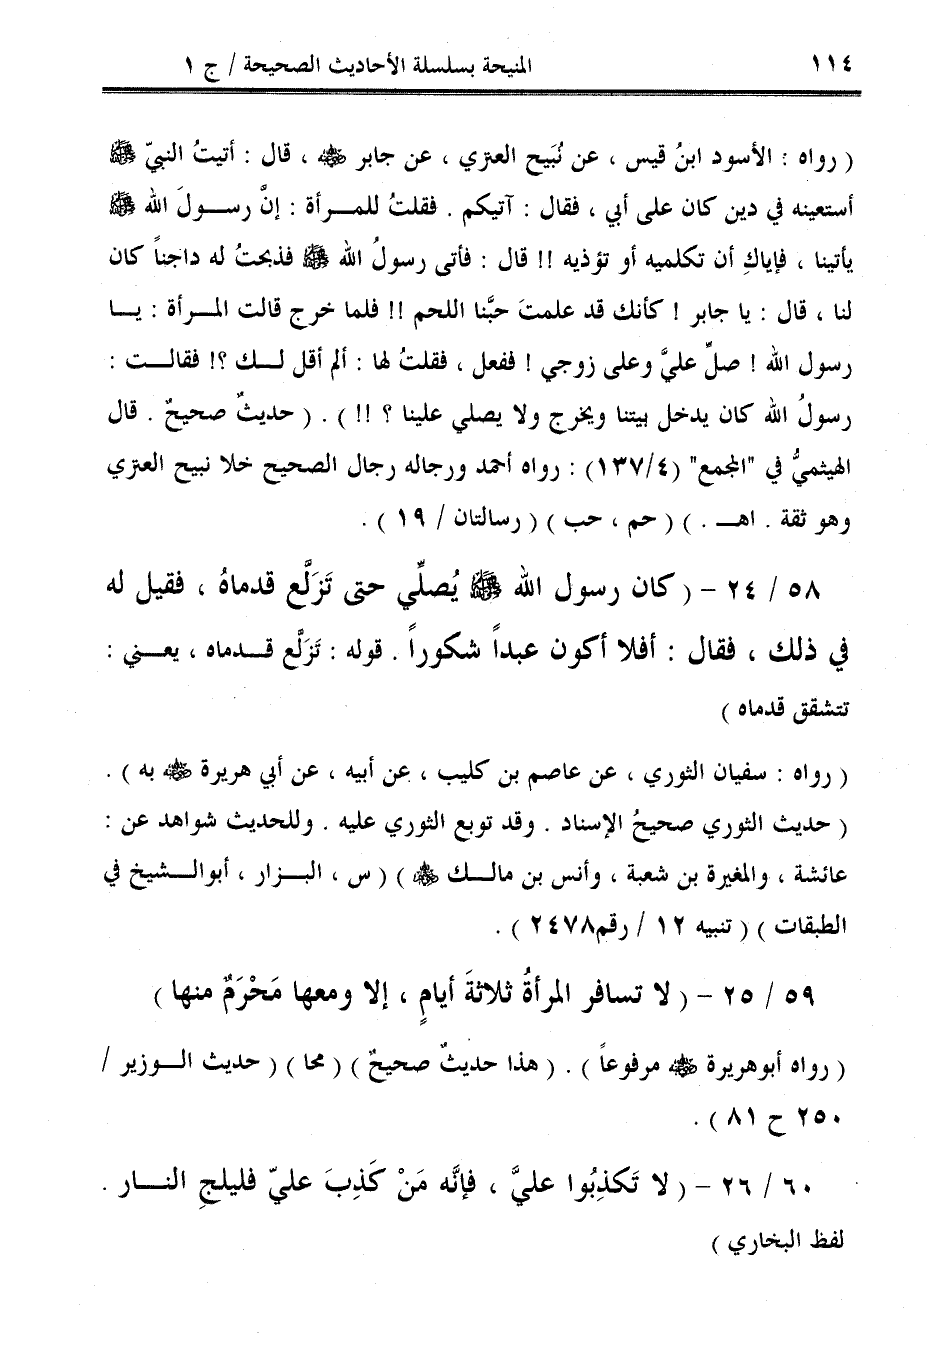 ١١٤ المنيحة بسلسلة الأحاديث الصحيحة / ج ١
( رواه : الأسود ابنُ قيس ، عن نُبَيح العتري ، عن جابر ﷺ ، قال : أتيتُ النبيّ ﷺ
أستعينه في دين كان على أبي ، فقال : آتيكم . فقلتُ للمـرأة : إنَّ رسـولَ الله ﷺ
يأتينا ، فإياكِ أن تكلميه أو تؤذيه !! قال : فأتى رسولُ الله ﷺ فذبحتُ له داجناً كان
لنا ، قال : يا جابر ! كأنك قد علمتَ حبَّنا اللحم !! فلما خرج قالت المـرأة : يـا
رسول الله ! صلِّ عليَّ وعلى زوجي ! ففعل ، فقلتُ لها : ألم أقل لـك ؟! فقالـت :
رسولُ الله كان يدخل بيتنا ويخرج ولا يصلي علينا ؟ !! ) . ( حديثٌ صحيحٌ . قال
الهيثميُّ في "المجمع" (١٣٧/٤) : رواه أحمد ورجاله رجال الصحيح خلا نبيح العتري
وهو ثقة . اهـ . ) ( حم ، حب ) ( رسالتان / ١٩ ) .
٥٨ / ٢٤ - ( كان رسول الله ﷺ يُصلِّي حتى تَزَلَّع قدماهُ ، فقيل له
في ذلك ، فقال : أفلا أكون عبداً شكوراً . قوله : تَزَلَّع قـدماه ، يعـني :
تتشقق قدماه )
( رواه : سفيان الثوري ، عن عاصم بن كليب ، عن أبيه ، عن أبي هريرة ﷺ به ) .
( حديث الثوري صحيحُ الإسناد . وقد توبع الثوري عليه . وللحديث شواهد عن :
عائشة ، والمغيرة بن شعبة ، وأنس بن مالـك ﷺ ) ( س ، البـزار ، أبوالـشيخ في
الطبقات ) ( تنبيه ١٢ / رقم٢٤٧٨ ) .
٥٩ / ٢٥ - ( لا تسافر المرأةُ ثلاثةَ أيامٍ ، إلا ومعها مَحْرَمٌ منها )
( رواه أبوهريرة ﷺ مرفوعاً ) . ( هذا حديثٌ صحيحٌ ) ( محا ) ( حديث الـوزير /
٢٥٠ ح ٨١ ) .
٦٠ / ٢٦ - ( لا تَكذِبُوا عليَّ ، فإنَّه مَنْ كَذِبَ عليّ فليلجِ النـار .
لفظ البخاري )